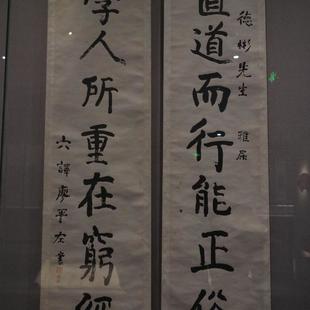 德彬先生 雅屬
直道而行能正俗
學人所重在窮經
六譯廖平左書